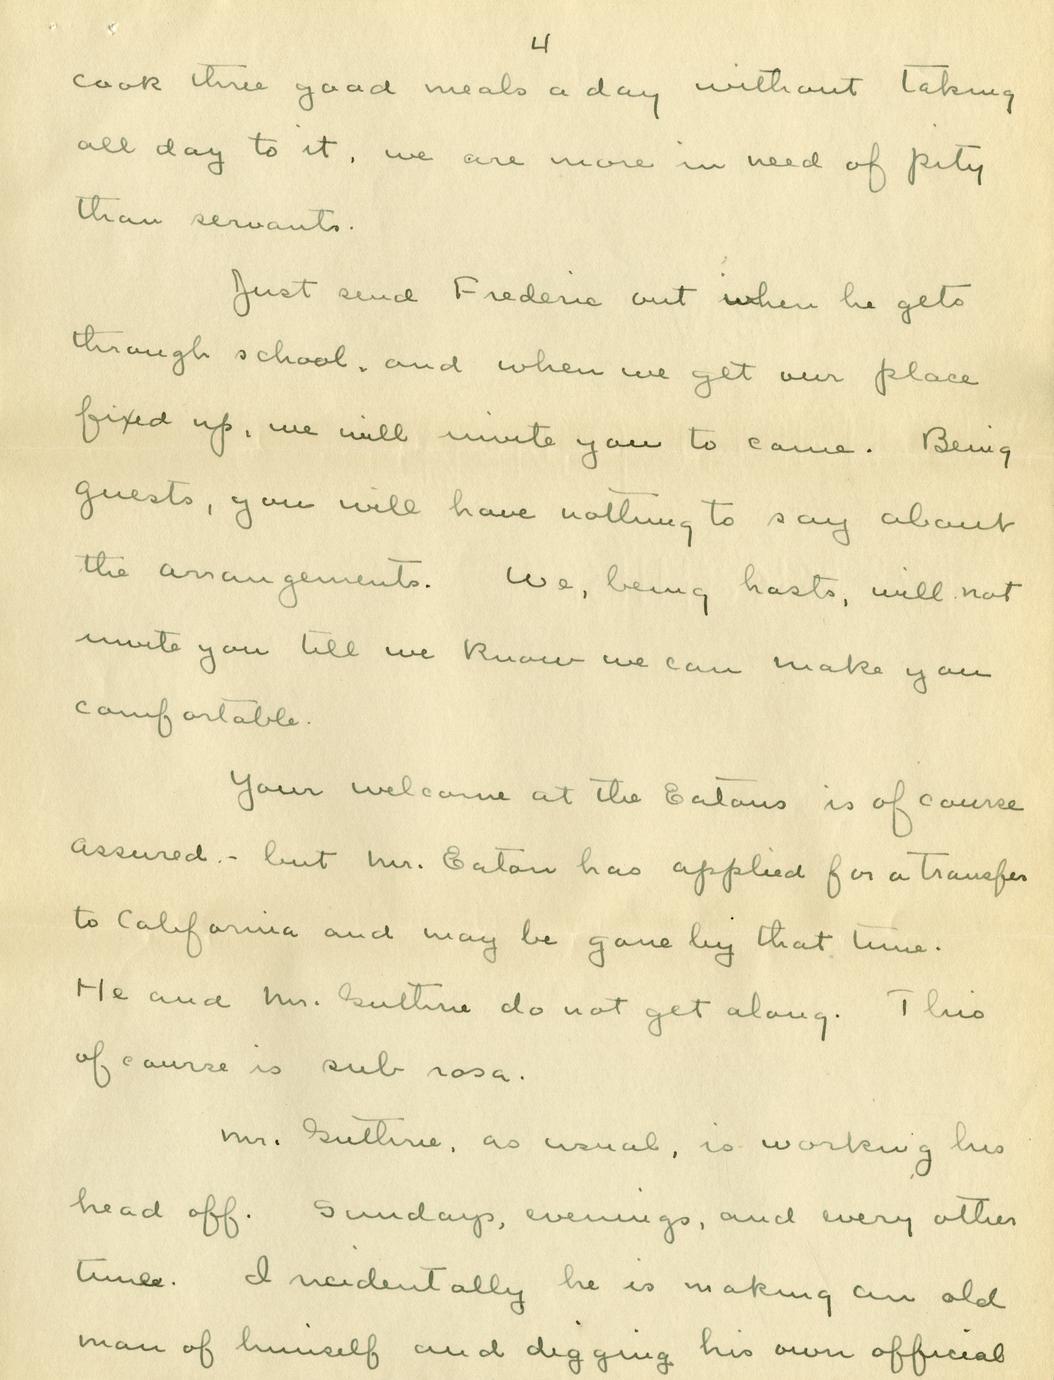 4
cook three good meals a day without taking
all day to it, we are more in need of pity
than servants.
Just send Frederic out when he gets
through school, and when we get our place
fixed up, we will invite you to come. Being
guests, you will have nothing to say about
the arrangements. We, being hosts, will not
invite you till we know we can make you
comfortable.
Your welcome at the Eatons is of course
assured - but Mr. Eaton has applied for a transfer
to California and may be gone by that time.
He and Mr. Guthrie do not get along. This
of course is sub rosa.
Mr. Guthrie, as usual, is working his
head off. Sundays, evenings, and every other
time. Incidentally he is making an old
man of himself and digging his own official